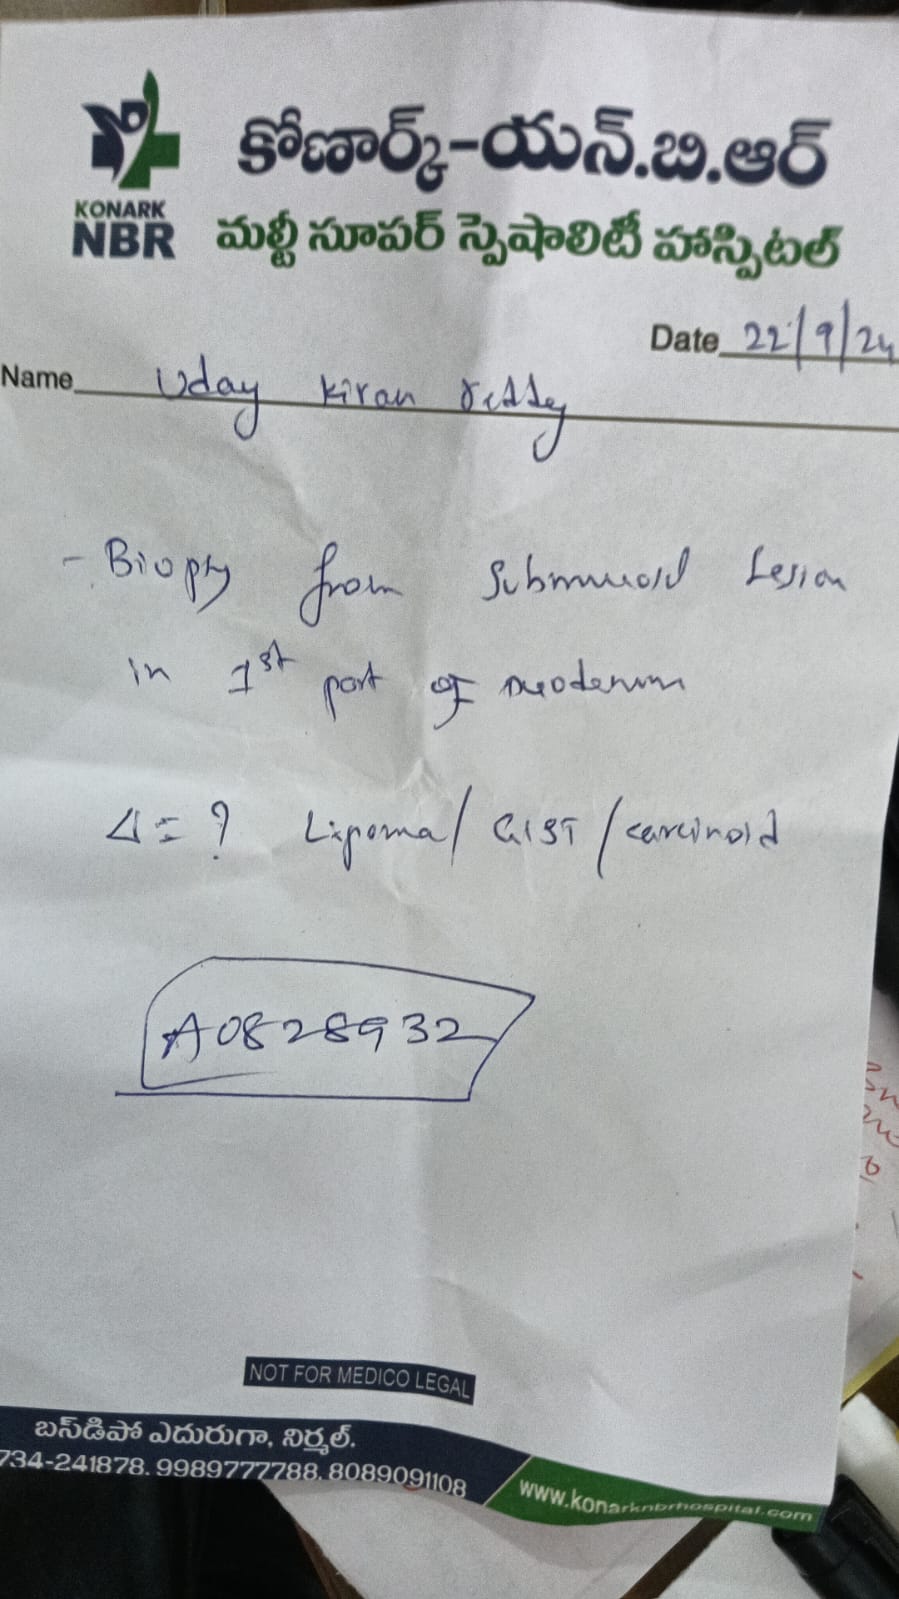 కోణార్క్-యన్.బి.ఆర్
KONARK
NBR
మల్టీ సూపర్ స్పెషాలిటీ హాస్పిటల్
Date 22/9/24
Name Uday Kiran reddy
- Biopsy from Submucosal Lesion
in 1st part of Duodenum
Δ= ? Lipoma/ GIST / carcinoid
A0828932
NOT FOR MEDICO LEGAL
బస్‌డిపో ఎదురుగా, నిర్మల్.
734-241878. 9989777788. 8089091108
www.konarknbrhospital.com